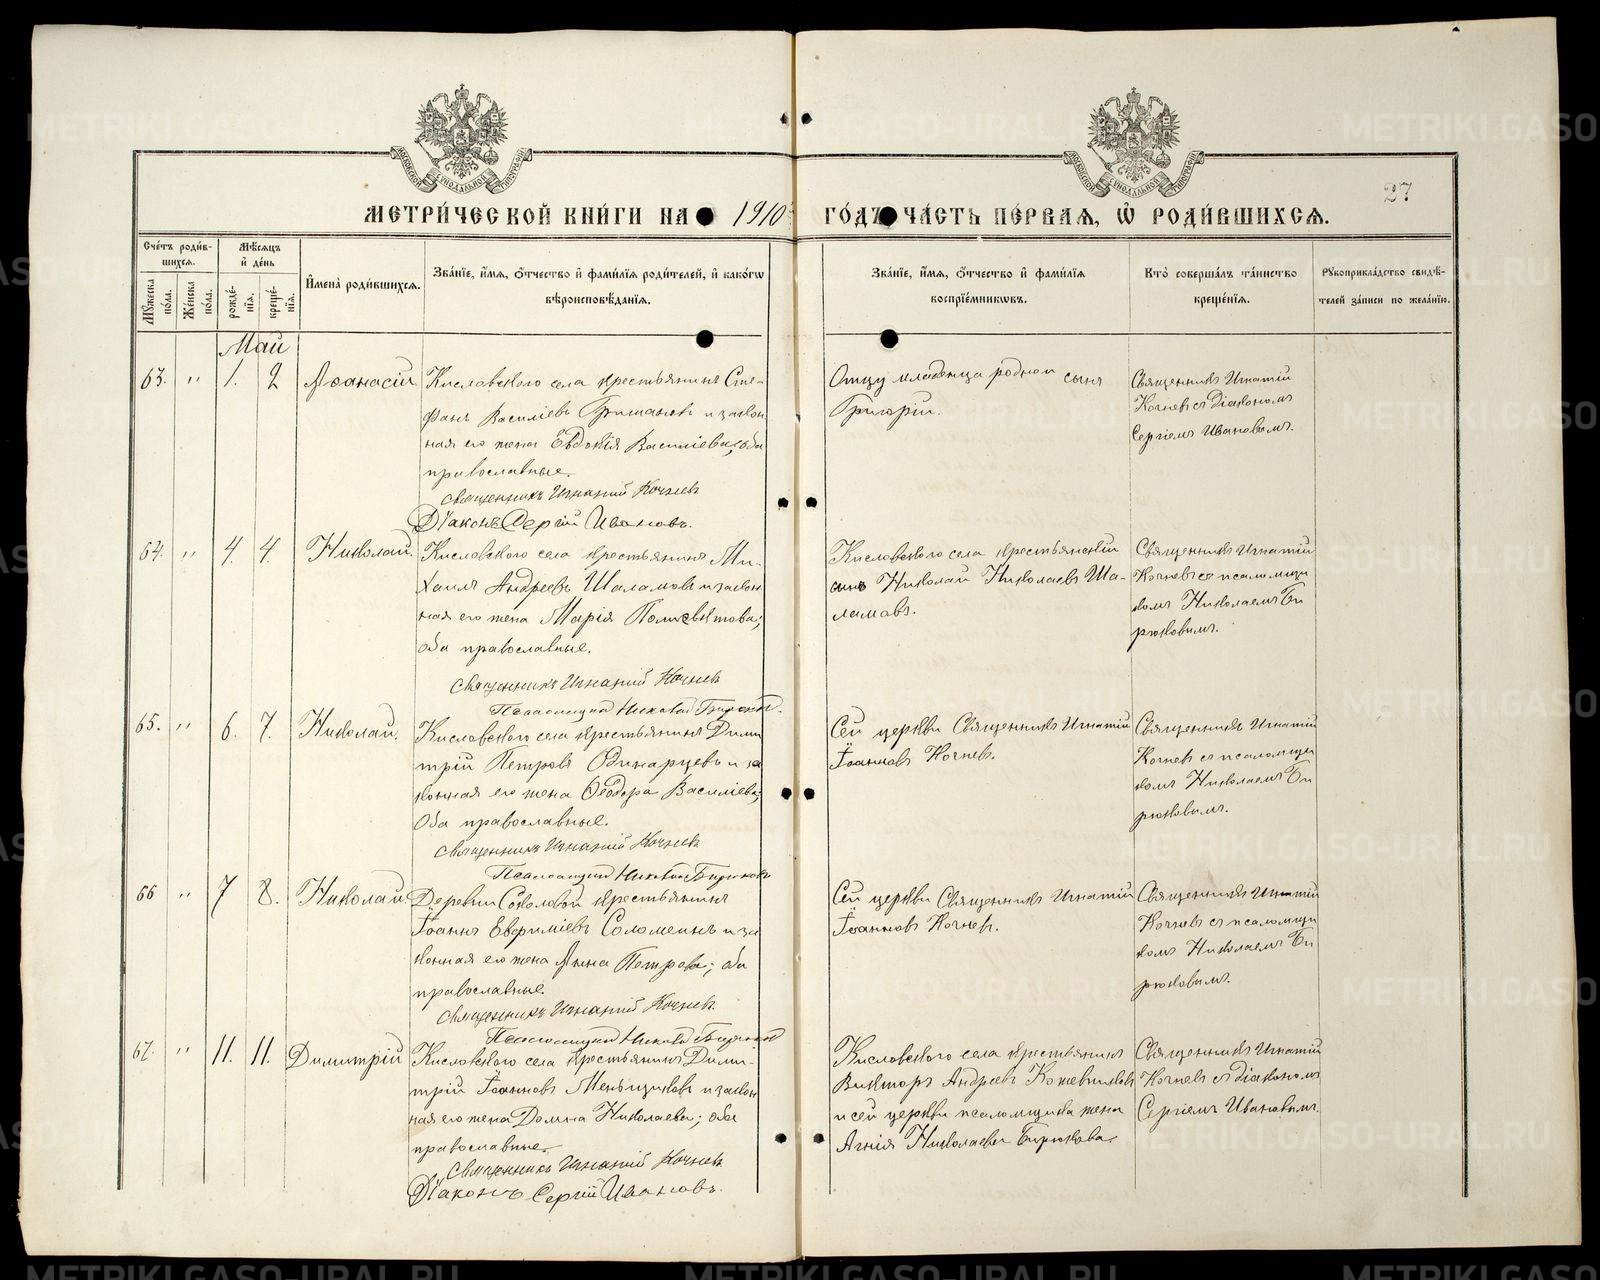 МЕТРИ́ЧЕСКОЙ КНИ́ГИ НА 1910 ГО́ДЪ ЧА́СТЬ ПЕ́РВАѦ, Ѽ РОДИ́ВШИХСѦ.
27
Сче́тъ роди́в-
шихсѧ.
Мꙋ́жеска по́ла.
Же́нска по́ла.
Мѣ́сѧцъ
и҆ де́нь
рожде́-
нїѧ.
креще́-
нїѧ.
И҆мена̀ роди́вшихсѧ.
Зва́нїе, и҆́мѧ, ѻ҆́тчество и҆ фами́лїѧ роди́телей, и҆ како́гѡ
вѣроисповѣ́данїѧ.
Зва́нїе, и҆́мѧ, ѻ҆́тчество и҆ фами́лїѧ
воспрїе́мникѡвъ.
Кто̀ соверша́лъ та́инство
креще́нїѧ.
Рꙋкоприкла́дство свидѣ́-
телей за́писи по жела́нїю.
Май
63. " 1. 2 Аѳанасій
Кисловского села крестьянинъ Сте-
фанъ Василіевъ Гришановъ и закон
ная его жена Евдокія Василіева; оба
православные.
Священникъ Игнатій Кочневъ
Діаконъ Сергій Ивановъ.
Отцу младенца родной сынъ
Григорій.
Священникъ Игнатій
Кочневъ съ діакономъ
Сергіемъ Ивановымъ.
64. " 4. 4. Николай.
Кисловского села крестьянинъ Ми-
хаилъ Андреевъ Шаламовъ и закон
ная его жена Марія Поліевктова;
оба православные.
Священникъ Игнатій Кочневъ
Псаломщикъ Николай Бирюковъ.
Кисловского села крестьянскій
сынъ Николай Николаевъ Ша-
ламовъ.
Священникъ Игнатій
Кочневъ съ псаломщи
комъ Николаемъ Би
рюковымъ.
65. " 6. 7. Николай.
Кисловского села крестьянинъ Дими
трій Петровъ Одинарцевъ и за
конная его жена Ѳеодора Василіева;
Оба православные.
Священникъ Игнатій Кочневъ
Псаломщикъ Николай Бирюковъ
Сей церкви Священникъ Игнатій
Іоанновъ Кочневъ.
Священникъ Игнатій
Кочневъ съ псаломщи
комъ Николаемъ Би
рюковымъ.
66 " 7 8. Николай
Деревни Соколовой крестьянинъ
Іоаннъ Евфиміевъ Соломеинъ и за
конная его жена Анна Петрова; оба
православные.
Священникъ Игнатій Кочневъ.
Псаломщикъ Николай Бирюковъ
Сей церкви Священникъ Игнатій
Іоанновъ Кочневъ.
Священникъ Игнатій
Кочневъ съ псаломщи
комъ Николаемъ Би
рюковымъ.
67. " 11. 11. Димитрій
Кисловского села крестьянинъ Дими-
трій Іоанновъ Меньщиковъ и закон
ная его жена Домна Николаева; оба
православные.
Священникъ Игнатій Кочневъ
Діаконъ Сергій Ивановъ.
Кисловского села крестьянинъ
Викторъ Андреевъ Кожевниковъ
и сей церкви псаломщика жена
Агнія Николаева Бирюкова.
Священникъ Игнатій
Кочневъ съ діакономъ
Сергіемъ Ивановымъ.